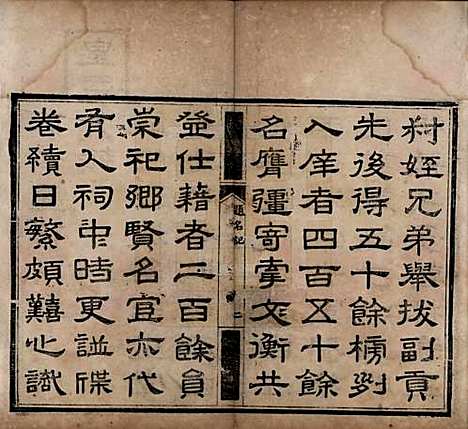 村姪兄弟舉拔副貢
先後得五十餘榜列
入庠者四百五十餘
名膺疆寄掌文衡共
題名記
二
益仕籍者二百餘員
崇祀鄉賢名宦亦代
有入祠中時更譜牒
卷續日繁頗囏心識